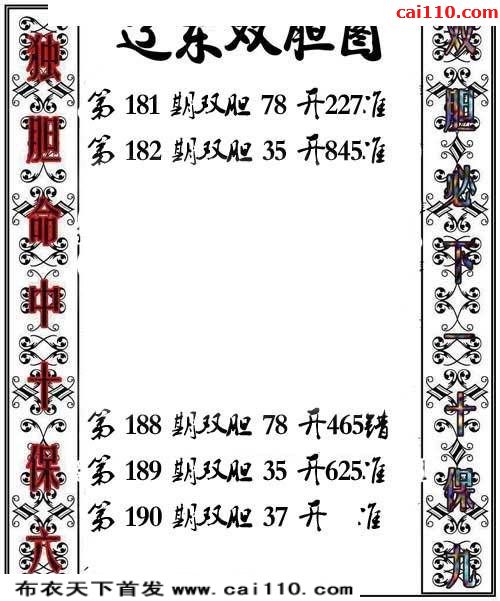 cai110.com
辽东双胆图
独胆命中十保六
双胆必下一十保九
第 181 期双胆 78 开227准
第 182 期双胆 35 开845准
第 188 期双胆 78 开465错
第 189 期双胆 35 开625准
第 190 期双胆 37 开 准
布衣天下首发 www.cai110.com